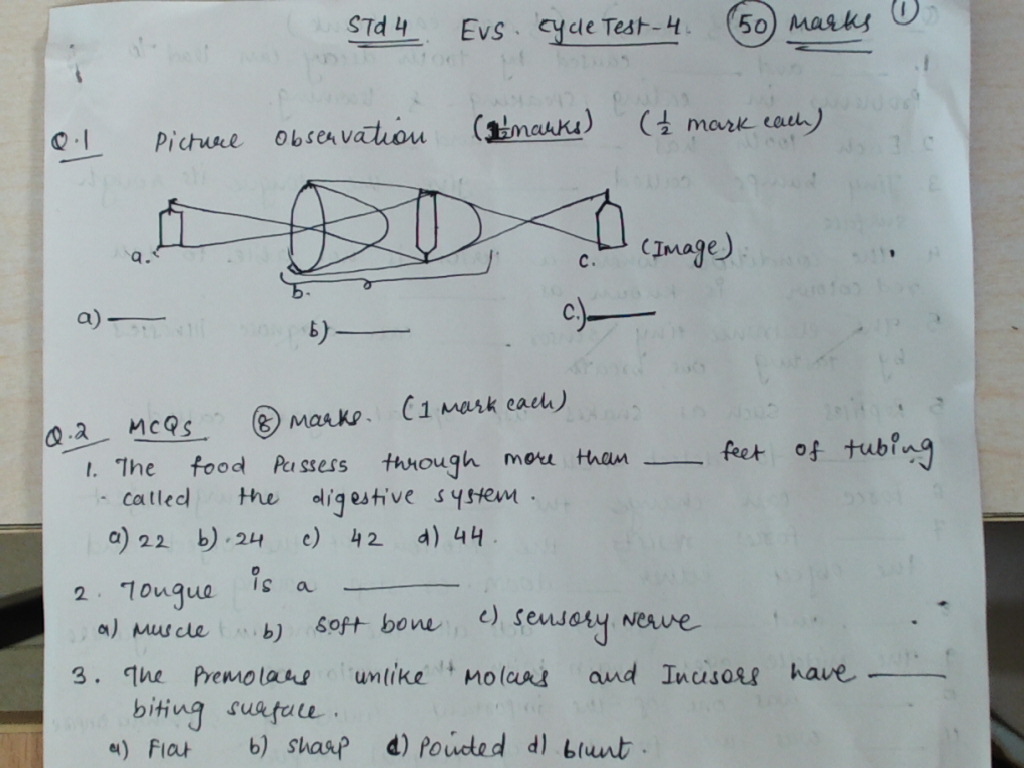 Std 4 EVS. Cycle Test-4. 50 Marks 1
Q.1 Picture Observation (1½marks) (½ mark each)
a. b. c. (Image)
a) ____ b) ____ c.) ____
Q.2 MCQs 8 marks. (1 Mark each)
1. The food Passess through more than ____ feet of tubing
called the digestive system.
a) 22 b) 24 c) 42 d) 44.
2. Tongue is a ____
a) Muscle b) soft bone c) sensory Nerve
3. The Premolars unlike Molars and Incisors have ____
biting surface.
a) Flat b) sharp c) Pointed d) blunt.